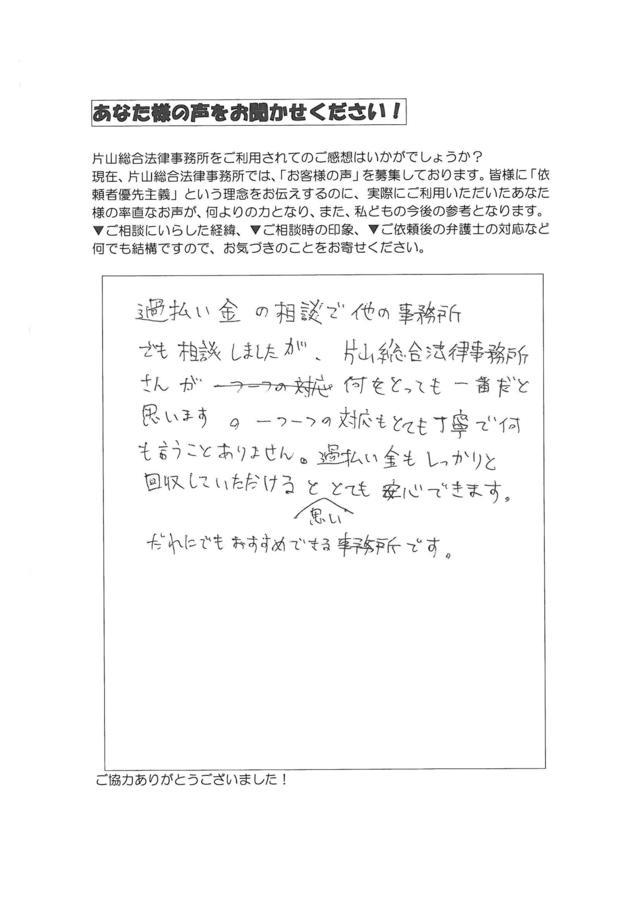 あなた様の声をお聞かせください！
片山総合法律事務所をご利用されてのご感想はいかがでしょうか？
現在、片山総合法律事務所では、「お客様の声」を募集しております。皆様に「依
頼者優先主義」という理念をお伝えするのに、実際にご利用いただいたあなた
様の率直なお声が、何よりの力となり、また、私どもの今後の参考となります。
▼ご相談にいらした経緯、▼ご相談時の印象、▼ご依頼後の弁護士の対応など
何でも結構ですので、お気づきのことをお寄せください。
過払い金の相談で他の事務所
でも相談しましたが、片山総合法律事務所
さんが 一つ一つの対応 何をとっても一番だと
思います。一つ一つの対応もとても丁寧で何
も言うことありません。過払い金もしっかりと
回収していただけると とても安心できます。
思い
だれにでもおすすめできる事務所です。
ご協力ありがとうございました！